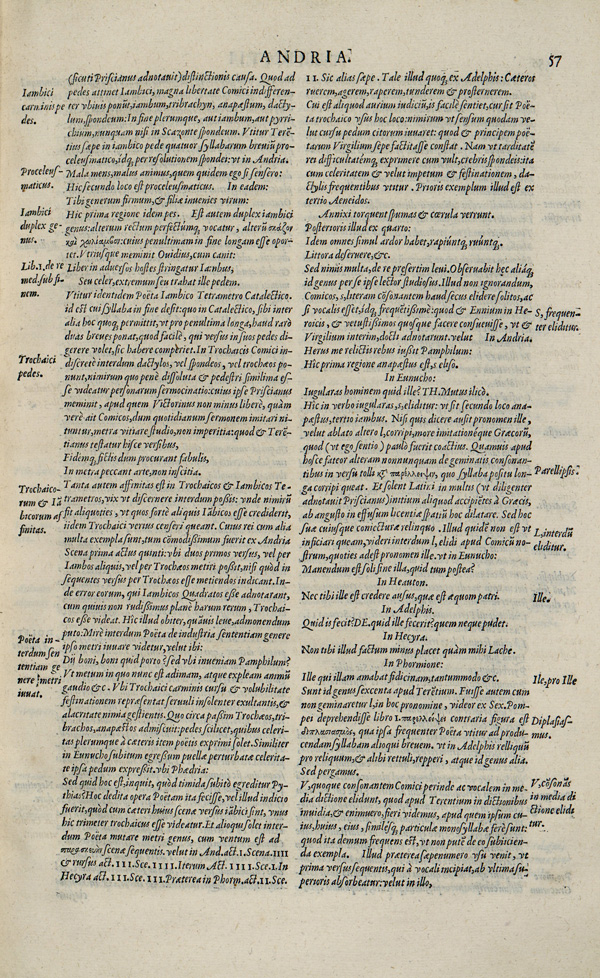 ANDRIA.
57
(sicuti Priscianus adnotauit) distinctionis causa. Quod ad
pedes attinet Iambici, magna libertate Comici indifferen-
ter vbiuis ponũt, iambum, tribrachyn, anapæstum, dacty-
lum, spondeum: In fine plerumque, aut iambum, aut pyrri-
chium, nunquam nisi in Scazonte spondeum. Vtitur Terẽ-
tius sæpe in iambico pede quatuor syllabarum breuiũ pro-
celeusmatico, idq́, per resolutionem spondei: vt in Andria.
Mala mens, malus animus, quem quidem ego si sensero:
Hic secundo loco est proceleusmaticus. In eadem:
Tibi generum firmum, & filiæ inuenies virum:
Hic prima regione idem pes. Est autem duplex iambici
genus: alterum rectum perfectũmq, vocatur, alterũ σκάζον
καὶ χωλίαμβον: cuius penultimam in fine longam esse opor-
ter. Vtriusque meminit Ouidius, cum canit:
Liber in aduersos hostes stringatur Iambus,
Seu celer, extremum seu trahat ille pedem.
Vtitur identidem Poëta Iambico Tetrametro Catalectico.
id est cui syllaba in fine desit: quo in Catalectico, sibi inter
alia hoc quoq, permittit, vt pro penultima longa, haud rarò
duas breues ponat, quod facilè, qui versus in suos pedes di-
gerere volet, sic habere comperiet. In Trochaicis Comici in-
discretè interdum dactylos, vel spondeos, vel trochæos po-
nunt, nimirum quo penè dissoluta & pedestri similima es-
se videatur personarum sermocinatio: cuius ipse Priscianus
meminit, apud quem Victorinus non minus liberè, quàm
verè ait Comicos, dum quotidianum sermonem imitari ni-
tuntur, metra vitiare studio, non imperitia: quod & Terẽ-
tianus testatur hisce versibus,
Fidemq́; fictis dum procurant fabulis,
In metra peccant arte, non inscitia.
Tanta autem affinitas est in Trochaicis & Iambicis Te-
trametros, vix vt discernere interdum possis: vnde nimirũ
fit aliquoties, vt quos fortè aliquis Iãbicos esse crediderit,
iidem Trochaici versus censeri queant. Cuius rei cum alia
multa exempla sunt, tum cõmodissimum fuerit ex Andria
Scena prima actus quinti: vbi duos primos versus, vel per
Iambos aliquis, vel per Trochæos metiri possit, nisi quòd in
sequentes versus per Trochæos esse metiendos indicant. In-
de error eorum, qui Iambicos Quadratos esse adnotarant,
cum quiuis non rudissimus planè harum rerum, Trochai-
cos esse videat. Hic illud obiter, quãuis leue, admonendum
puto: Mirè interdum Poëta de industria sententiam genere
ipso metri iuuare videtur, velut ibi:
Dij boni, boni quid porto? sed vbi inueniam Pamphilum?
Vt metum in quo nunc est adimam, atque expleam animũ
gaudio &c. Vbi Trochaici carminis cursu & volubilitate
festinationem repræsentat seruuli insolenter exultantis, &
alacritate nimia gestientis. Quo circa passim Trochæos, tri-
brachos, anapæstos admiscuit: pedes scilicet, quibus celeri-
tas plerunque à cæteris item poëtis exprimi solet. Similiter
in Eunucho subitum egressum puellæ perturbatæ celerita-
te ipsa pedum expressit. vbi Phædria:
Sed quid hoc est, inquit, quòd timida subitò egreditur Py-
thias? Hoc dedita opera Poëtam ita fecisse, vel illud indicio
fuerit, quòd cum cæteri huius scenæ versus iãbici sint, vnus
hic trimeter trochaicus esse videatur. Et alioqui solet inter-
dum Poëta mutare metri genus, cum ventum est ad
scenæ sequentis. velut in And. act. I. Scena. IIII
& rursus act. III. Sce. IIII. Iterum Act. IIII. Sce. I. In
Hecyra act. III. Sce. III. Præterea in Phorm. act. II. Sce.
Iambici
carminis pe
des.
Proceleus-
maticus.
Iambici
duplex ge-
nus.
Lib. I. de re
med. sub fi-
nem.
Trochaici
pedes.
Trochaico-
rum & Iã-
bicorum af
finitas.
Poëta in-
terdum sen
tentiam ge
nere metri
iuuat.
II. Sic alias sæpe. Tale illud quoq́, ex Adelphis: Cæteros
ruerem, agerem, raperem, tunderem & prosternerem.
Cui est aliquod aurium iudiciũ, is facilè sentiet, cur sit Poë-
ta trochaico vsus hoc loco: nimirum vt sensum quodam ve-
lut cursu pedum citorum iuuaret: quod & principem poë-
tarum Virgilium sepe factitasse constat. Nam vt tarditatẽ
rei difficultatemq́, exprimere cum vult, crebris spondeis: ita
cum celeritatem & velut impetum & festinationem, da-
ctylis frequentibus vtitur. Prioris exemplum illud est ex
tertio Aeneidos.
Annixi torquent spumas & cœrula verrunt.
Posterioris illud ex quarto:
Idem omnes simul ardor habet, rapiũntq, ruũntq́,
Littora deseruere, &c.
Sed nimis multa, de re presertim leui. Obseruabit hec aliáq,
id genus per se ipse lector studiosus. Illud non ignorandum,
Comicos, s, literam cõsonantem haud secus elidere solitos, ac
si vocalis esset, idq, frequẽtissimè: quod & Ennium in He-
roicis, & vetustissimos quosque facere consueuisse, vt &
Virgilium interim, docti adnotarunt. velut In Andria.
Herus me relictis rebus iussit Pamphilum:
Hic prima regione anapæstus est, s, eliso.
In Eunucho:
Iugularas hominem quid ille? TH. Mutus ilicò.
Hic in verbo iugularas, s, eliditur: vt sit secundo loco ana-
pæstus, tertio iambus. Nisi quis dicere ausit pronomen ille,
velut ablato altero l, corripi, more imitationéque Græcorũ,
quod (vt ego sentio) paulò fuerit coactius. Quamuis apud
hosce fateor alteram nonnunquam de geminatis consonan-
tibus in versu tolli κτ̀ παρέλλειψιν, quo syllaba positu lon-
ga corripi queat. Et solent Latini in multis (vt diligenter
adnotauit Priscianus) initium aliquod accipiẽtes à Græcis,
ab angusto in effusum licentiæ spatiũ hoc dilatare. Sed hoc
suæ cuiusque coniecturæ relinquo. Illud quidẽ non est vt
inficiari queam, videri interdum l, elidi apud Comicũ no-
strum, quoties adest pronomen ille. vt in Eunucho:
Manendum est soli sine illa, quid tum postea?
In Heauton.
Nec tibi ille est credere ausus, quæ est æquom patri.
In Adelphis.
Quid is fecit? DE. quid ille fecerit? quem neque pudet.
In Hecyra.
Non tibi illud factum minus placet quàm mihi Lache.
In Phormione:
Ille qui illam amabat fidicinam, tantummodo &c.
Sunt id genus sexcenta apud Terẽtium. Fuisse autem cum
non geminaretur l, in hoc pronomine, videor ex Sex. Pom-
peo deprehendisse libro I. παρελλείψει contraria figura est
διπλασιασμὸς, qua ipsa frequenter Poëta vtitur ad produ-
cendam syllabam alioqui breuem. vt in Adelphis relliquũ
pro reliquum, & alibi rettuli, repperi, atque id genus alia.
Sed pergamus.
V, quoque consonantem Comici perinde ac vocalem in me-
dia dictione elidunt, quod apud Terentium in dictionibus
inuidia, & enimuero, fieri videmus, apud quem ipsum cu-
ius, huius, eius, similesq́, particulæ monosyllabæ ferè sunt:
quod ita demum frequens est, vt non putẽ de eo subiicien-
da exempla. Illud præterea sæpenumero vsu venit, vt
prima versus sequentis, qui à vocali incipiat, ab vltima su-
perioris absorbeatur: velut in illo,
S, frequen-
ter eliditur.
Parellipsis.
L, interdũ
eliditur.
Ille.
Ile, pro Ille
Diplasias-
mus.
V, cõsonãs
in media di
ctione elidi
tur.